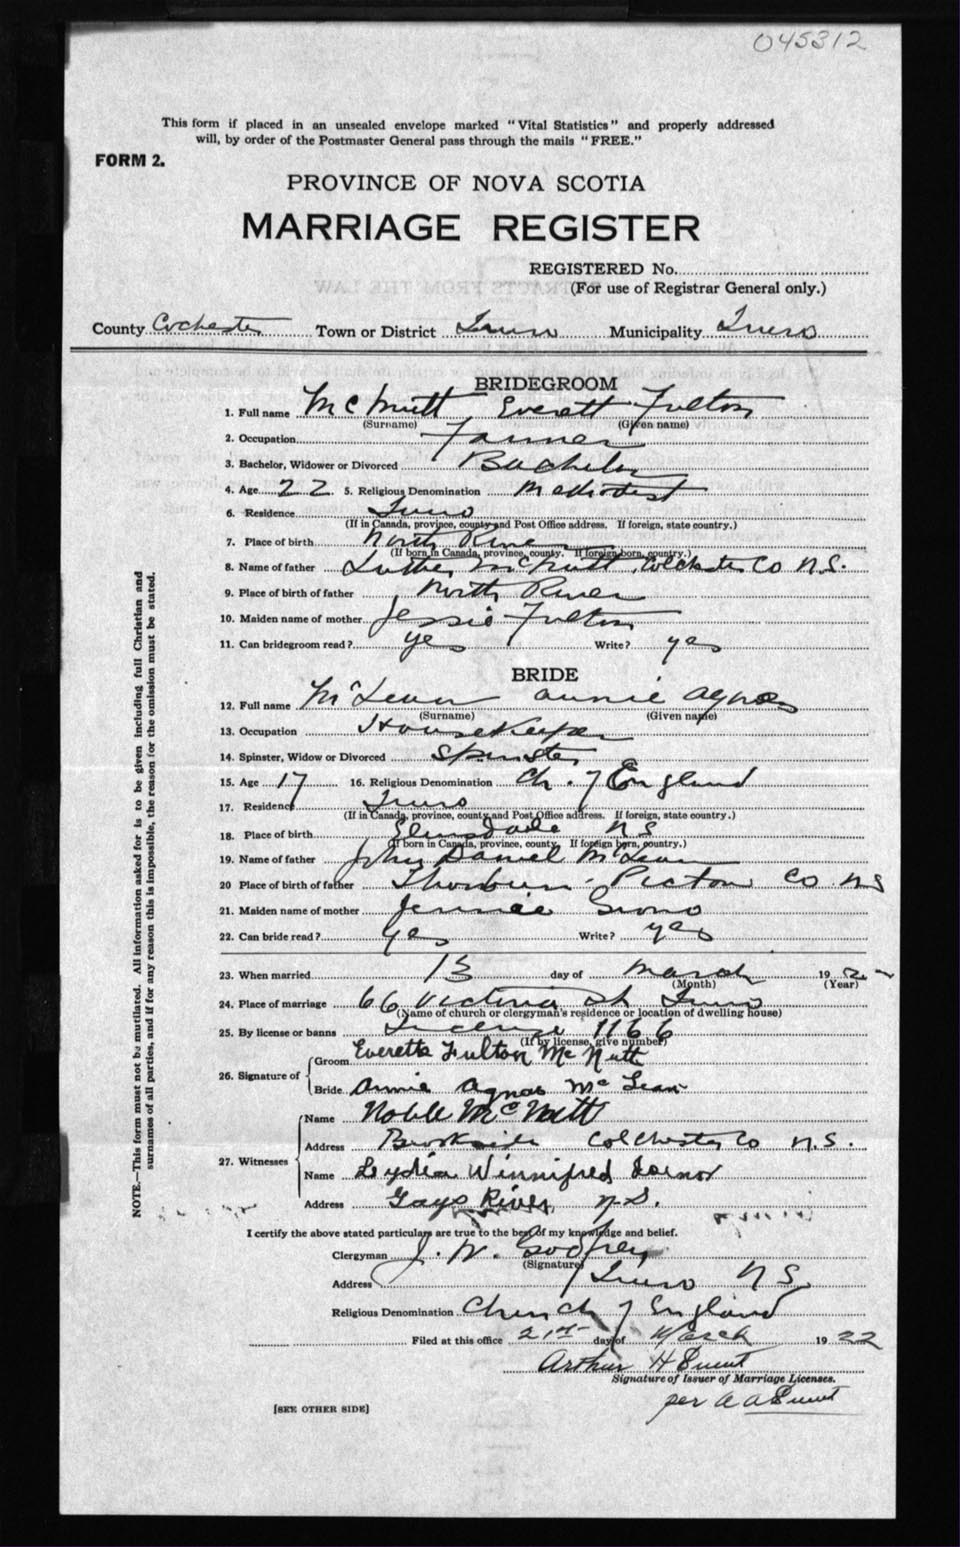 045312
This form if placed in an unsealed envelope marked "Vital Statistics" and properly addressed
will, by order of the Postmaster General pass through the mails "FREE."
FORM 2.
PROVINCE OF NOVA SCOTIA
MARRIAGE REGISTER
REGISTERED No.
(For use of Registrar General only.)
County Colchester Town or District Truro Municipality Truro
BRIDEGROOM
1. Full name McNutt, Everett Fulton
(Surname) (Given name)
2. Occupation Farmer
3. Bachelor, Widower or Divorced Bachelor
4. Age 22 5. Religious Denomination Methodist
6. Residence Truro
(If in Canada, province, county and Post Office address. If foreign, state country.)
7. Place of birth North River
(If born in Canada, province, county. If foreign born, country.)
8. Name of father Luther McNutt, Colchester Co N.S.
9. Place of birth of father North River
10. Maiden name of mother Jessie Fulton
11. Can bridegroom read? yes Write? yes
BRIDE
12. Full name McLean Annie Agnes
(Surname) (Given name)
13. Occupation Housekeeper
14. Spinster, Widow or Divorced Spinster
15. Age 17 16. Religious Denomination Ch. of England
17. Residence Truro
(If in Canada, province, county and Post Office address. If foreign, state country.)
18. Place of birth Elmsdale NS
(If born in Canada, province, county. If foreign born, country.)
19. Name of father John Daniel McLean
20 Place of birth of father Thorburn - Pictou Co. NS
21. Maiden name of mother Jennie
22. Can bride read? yes Write? yes
23. When married 13 day of March 192
(Month) (Year)
24. Place of marriage 66 Victoria St Truro
(Name of church or clergyman's residence or location of dwelling house)
25. By license or banns License 1166
(If by license, give number)
26. Signature of
Groom Everett Fulton McNutt
Bride Annie Agnes McLean
27. Witnesses
Name Noble McNutt
Address Brookside Colchester Co N.S.
Name Lydia Winnifred
Address Gays River, N.S.
I certify the above stated particulars are true to the best of my knowledge and belief.
Clergyman J. W. Godfrey
(Signature)
Address Truro NS
Religious Denomination Church of England
Filed at this office 21st day of March 1922
Arthur H
Signature of Issuer of Marriage Licenses.
per A A
[SEE OTHER SIDE]
NOTE.—This form must not be mutilated. All information asked for is to be given including full Christian and
surnames of all parties, and if for any reason this is impossible, the reason for the omission must be stated.